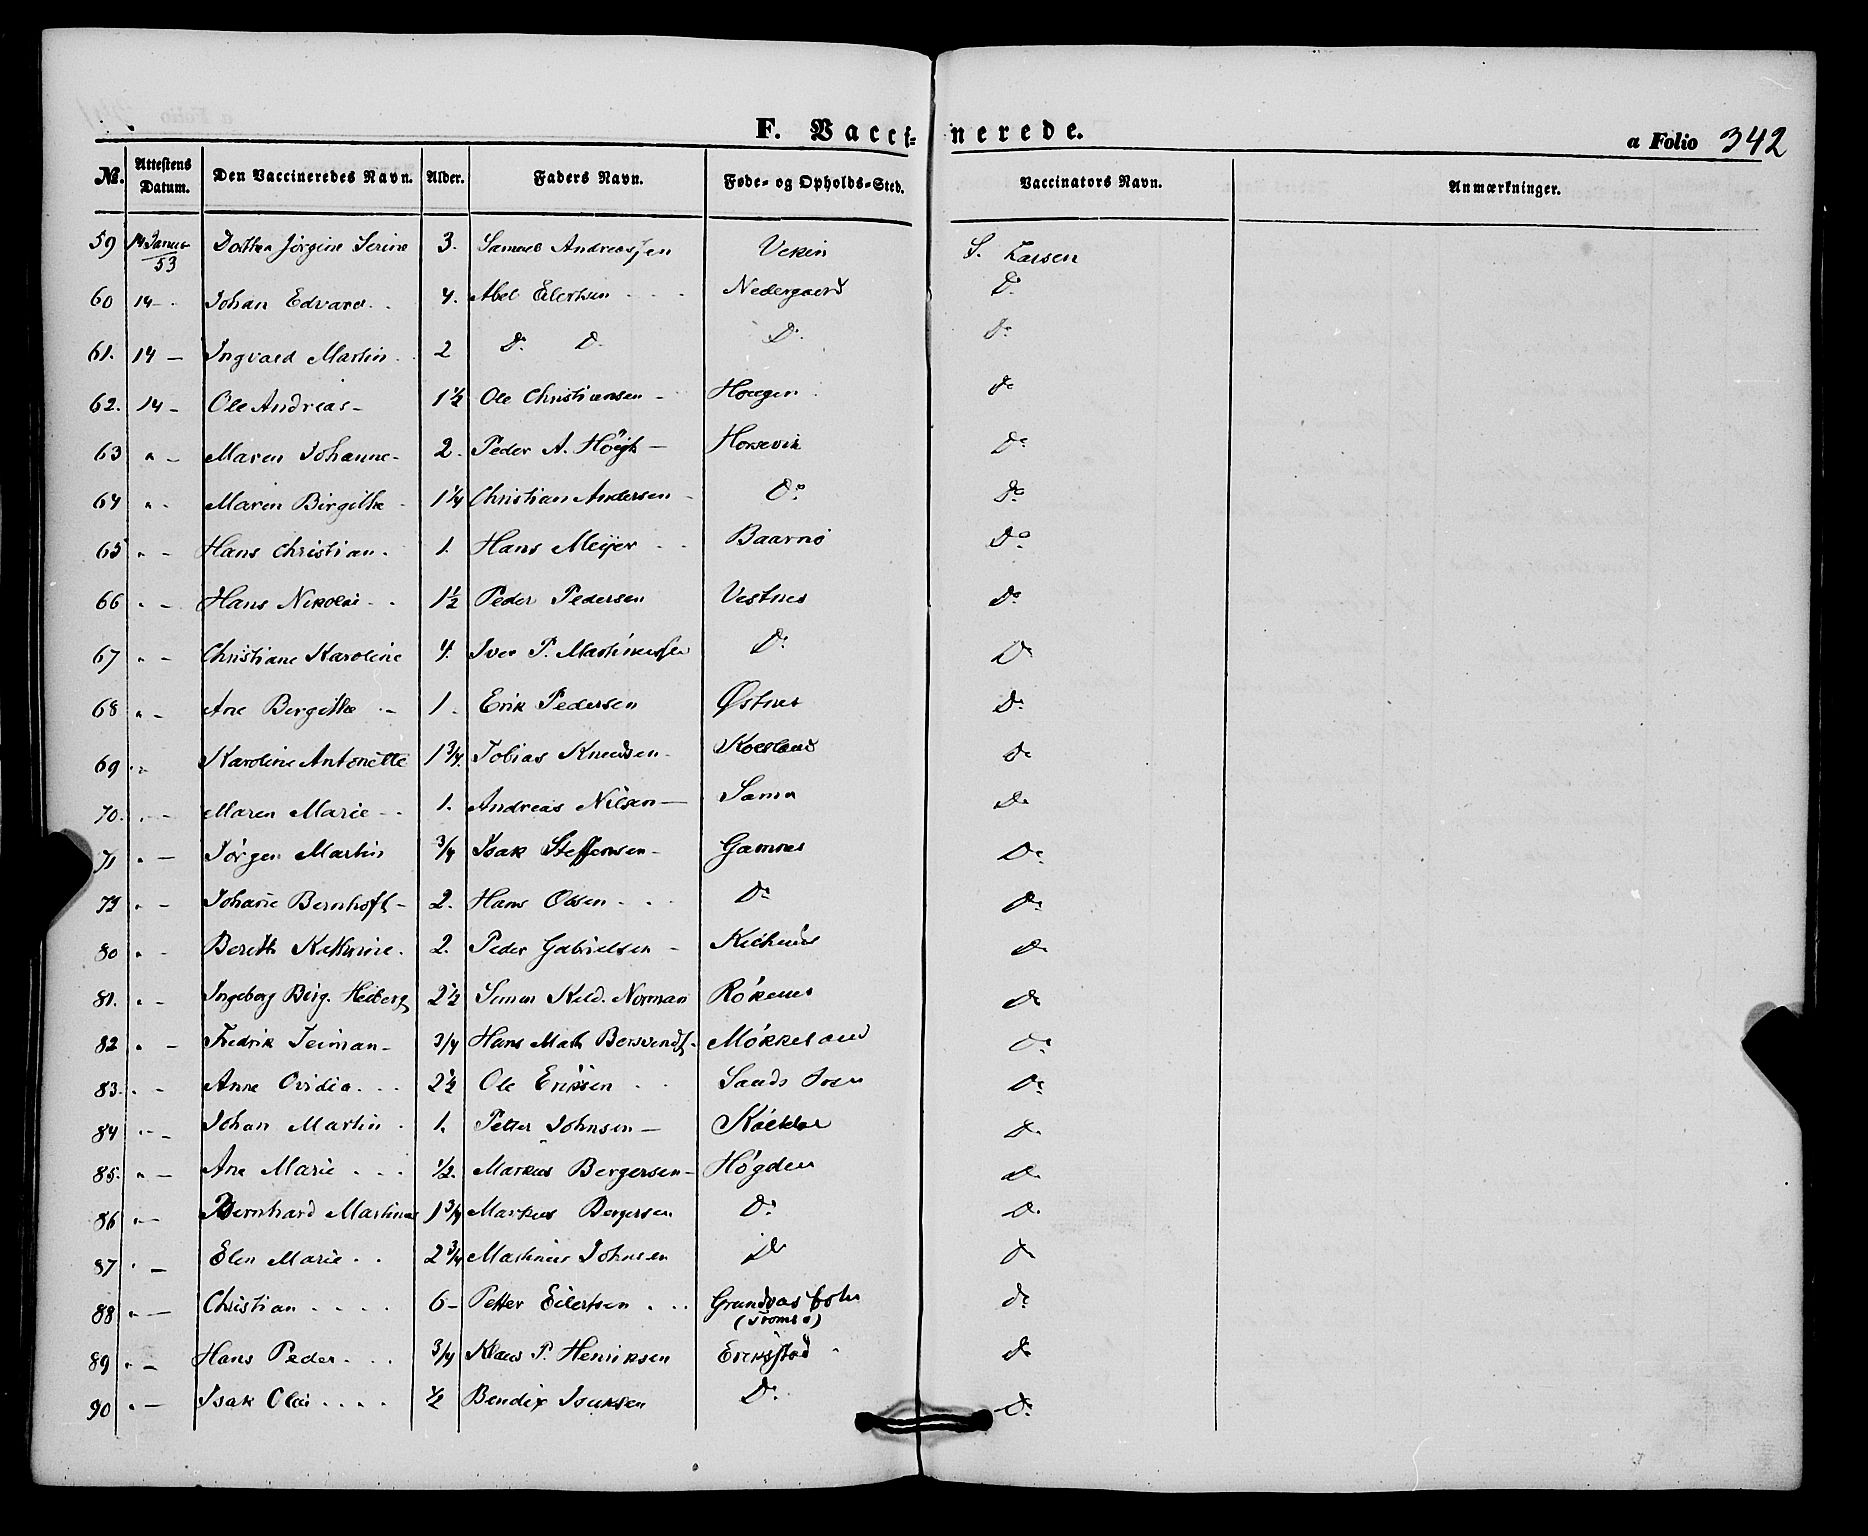 F. Vacci= nerede. a Folio 342
No. Attestens Datum. Den Vaccineredes Navn. Alder. Faders Navn. Føde- og Opholds-Sted. Vaccinators Navn. Anmærkninger.
59 14 Januar 53 Dorthea Jørgine Serine 3. Samuel Andreassen S. Larsen
60 14 - Johan Edvard 4. Abel Eilertsen Nedergaard Do
61. 14 - Ingvald Martin 2 Do Do Do Do
62. 14 - Ole Andreas - 1½ Ole Christiansen - Haugen Do
63 " - Maren Johanne - 2. Peder A. Høigh - Horsevik Do
64 " - Maren Birgithe - 1¼ Christian Andersen - Do Do
65 " - Hans Christian. 1. Hans Meijer Baarnö Do
66 " - Hans Nikolai 1½ Peder Pedersen Vestnes Do
67 " - Christiane Karoline 4. Iver P. Martinussen Do Do
68 " - Ane Bergithe - 1. Erik Pedersen Østnes Do
69 " Karoline Antonette 1¾. Tobias Knudsen - Do
70. " - Maren Marie - 1. Andreas Nilsen - Sama Do
71 " - Jørgen Martin ¾ Isak Steffensen - Gamnes Do
79 " - Johan Bernhoft - 2. Hans Olsen Do Do
80 " - Berith Kathrine. 2. Peder Gabrielsen - Do
81. " - Ingeborg Birg. Heiberg 2½ Simon Kild. Norman Rökenes Do
82 " - Fredrik Teiman - ¾ Hans Math Bersvends. Mökkeland Do
83. " - Anne Ovidia 2½ Ole Eriksen Sands Do
84 " - Johan Martin 1. Petter Johnsen - Do
85. " - Ane Marie ½. Markus Bergersen - Högden Do
86 " - Bernhard Martinus 1¾ Markus Bergersen Do Do
87 " - Elen Marie 2¾ Martinus Johnsen Do Do
88 " - Christian 6 - Petter Eilertsen Do
(Tromsø)
89 " - Hans Peder ¾ Klaus P. Henriksen Erikstad Do
90 " - Isak Olai ½ Bendix Isaksen Do Do